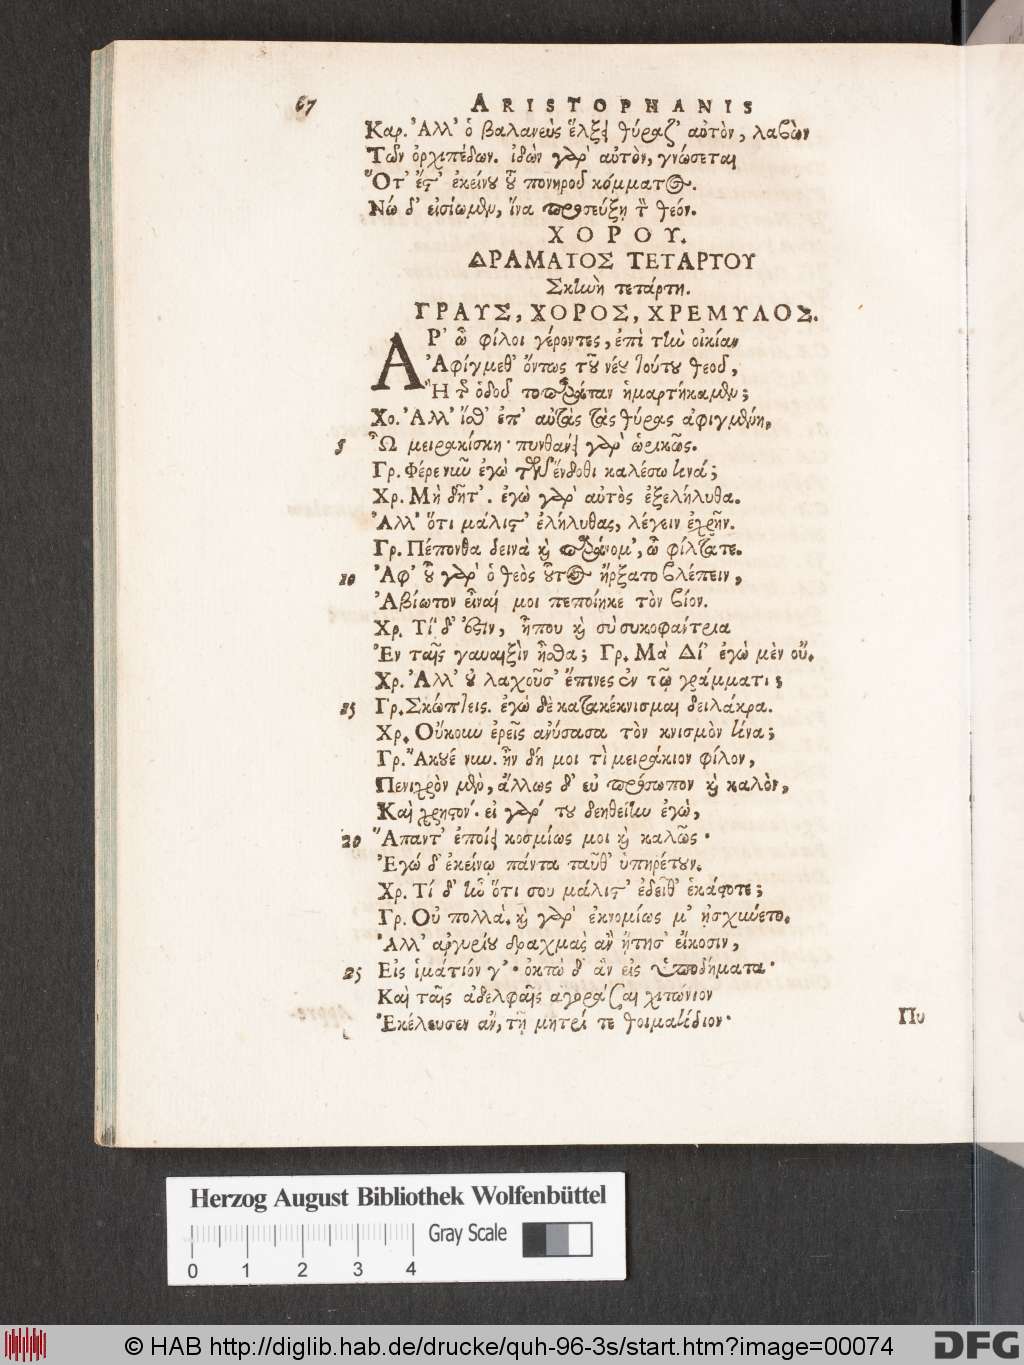 67 ARISTOPHANIS
Καρ. Ἀλλ' ὁ βαλανεὺς ἕλξει θύραζ' αὐτὸν, λαβὼν
Τῶν ὀρχιπέδων. ἰδὼν γὰρ αὐτὸν, γνώσεται
Ὅτ' ἔστ' ἐκείνου τοῦ πονηροῦ κόμματος.
Νώ δ' εἰσίωμεν, ἵνα προσεύξῃ τὸν θεόν.
ΧΟΡΟΥ.
ΔΡΑΜΑΤΟΣ ΤΕΤΑΡΤΟΥ
Σκηνὴ τετάρτη.
ΓΡΑΥΣ, ΧΟΡΟΣ, ΧΡΕΜΥΛΟΣ.
ΑΡ' ὦ φίλοι γέροντες, ἐπὶ τὴν οἰκίαν
Ἀφίγμεθ' ὄντως τοῦ νέου τούτου θεοῦ,
Ἢ τῆς ὁδοῦ τοπαράπαν ἡμαρτήκαμεν;
Χο. Ἀλλ' ἴσθ' ἐπ' αὐτὰς τὰς θύρας ἀφιγμένη,
5 Ὦ μειρακίσκη· πυνθάνει γὰρ ὡρικῶς.
Γρ. Φέρε νῦν ἐγὼ τῶν ἔνδοθι καλέσω τινά;
Χρ. Μὴ δῆτ'. ἐγὼ γὰρ αὐτὸς ἐξελήλυθα.
Ἀλλ' ὅτι μάλιστ' ἐλήλυθας, λέγειν ἐχρῆν.
Γρ. Πέπονθα δεινὰ καὶ παράνομ', ὦ φίλτατε.
10 Ἀφ' οὗ γὰρ ὁ θεὸς οὗτος ἤρξατο βλέπειν,
Ἀβίωτον εἶναί μοι πεποίηκε τὸν βίον.
Χρ. Τί δ' ἔστιν, ἦπου καὶ σὺ συκοφάντρια
Ἐν ταῖς γυναιξὶν ἦσθα; Γρ. Μὰ Δί' ἐγὼ μὲν οὔ.
Χρ. Ἀλλ' οὐ λαχοῦσ' ἔπινες ἐν τῷ γράμματι;
15 Γρ. Σκώπτεις. ἐγὼ δὲ κατακέκνισμαι δειλάκρα.
Χρ. Οὔκουν ἐρεῖς ἀνύσασα τὸν κνισμὸν τίνα;
Γρ. Ἄκουέ νυν. ἦν δή μοι τὶ μειράκιον φίλον,
Πενιχρὸν μὲν, ἄλλως δ' εὐπρόσωπον καὶ καλὸν,
Καὶ χρηστόν. εἰ γάρ του δεηθείην ἐγὼ,
20 Ἅπαντ' ἐποίει κοσμίως μοι καὶ καλῶς·
Ἐγώ δ' ἐκείνῳ πάντα ταῦθ' ὑπηρέτουν.
Χρ. Τί δ' ἦν ὅτι σου μάλιστ' ἐδεῖθ' ἑκάστοτε;
Γρ. Οὐ πολλά. καὶ γὰρ ἐκνομίως μ' ᾐσχύνετο.
Ἀλλ' ἀργυρίου δραχμὰς ἂν ᾔτησ' εἴκοσιν,
25 Εἰς ἱμάτιόν γ'· ὀκτὼ δ' ἂν εἰς ὑποδήματα·
Καὶ ταῖς ἀδελφαῖς ἀγοράσαι χιτώνιον
Ἐκέλευσεν ἂν, τῇ μητρί τε θοἰματίδιον·
Πυ
Herzog August Bibliothek Wolfenbüttel
0 1 2 3 4
Gray Scale
© HAB http://diglib.hab.de/drucke/quh-96-3s/start.htm?image=00074
DFG